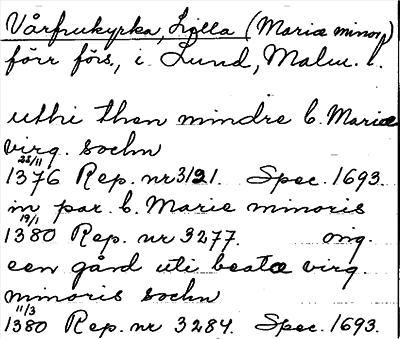 Vårfrukyrka, Lilla (Mariæ minor)
förr förs., i Lund, Malm. l.
uthi then mindre b. Mariæ
virg. sochn
22/11
1376 Rep. nr 3121. Spec. 1693.
in par. b. Marie minoris
19/1
1380 Rep. nr 3277. orig.
een gård uti beatæ virg.
minoris sochn
11/3
1380 Rep. nr 3284. Spec. 1693.